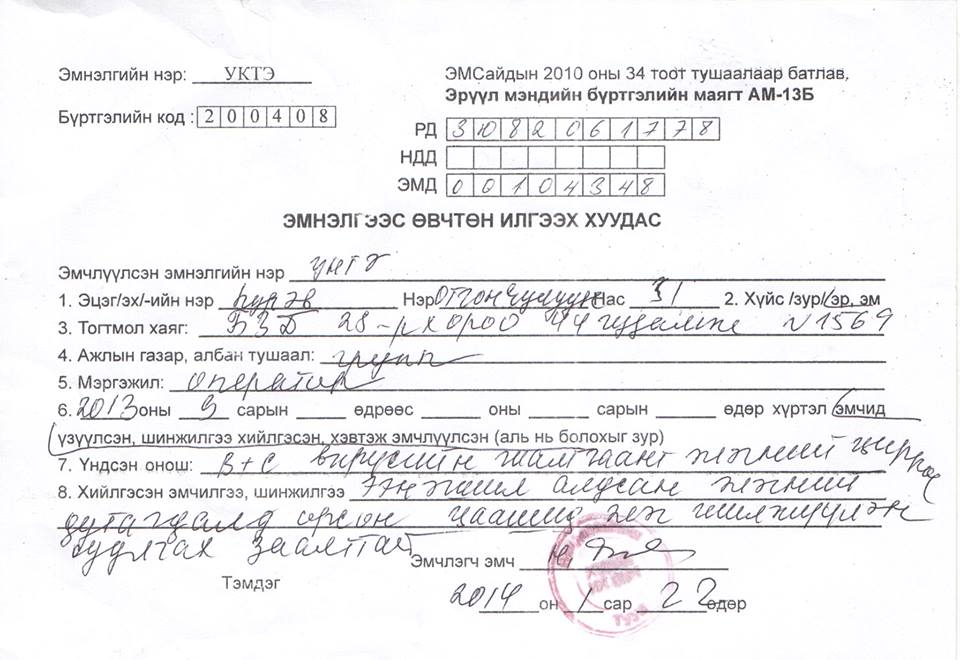 Эмнэлгийн нэр: УКТЭ
ЭМСайдын 2010 оны 34 тоот тушаалаар батлав.
Эрүүл мэндийн бүртгэлийн маягт АМ-13Б
Бүртгэлийн код : 2 0 0 4 0 8
РД З Ю 8 2 0 6 1 7 7 8
НДД
ЭМД 0 0 1 0 4 3 4 8
ЭМНЭЛГЭЭС ӨВЧТӨН ИЛГЭЭХ ХУУДАС
Эмчлүүлсэн эмнэлгийн нэр УНТЭ
1. Эцэг/эх/-ийн нэр Пүрэв Нэр Отгончулуун Нас 31 2. Хүйс /зур/ эр, эм
3. Тогтмол хаяг: БЗД 28-р хороо 44 гудамж N1569
4. Ажлын газар, албан тушаал: групп
5. Мэргэжил: оператор
6. 2013 оны 9 сарын ____ өдрөөс ____ оны ____ сарын ____ өдөр хүртэл эмчид
үзүүлсэн, шинжилгээ хийлгэсэн, хэвтэж эмчлүүлсэн (аль нь болохыг зур)
7. Үндсэн онош: B+C вирусийн шалтгаант элэгний цирроз
8. Хийлгэсэн эмчилгээ, шинжилгээ тэнэгшил алдсан элэгний
дутагдалд орсон цаашид элэг шилжүүлэн
суулгах заалттай
Эмчлэгч эмч
Тэмдэг
2014 он 1 сар 22 өдөр